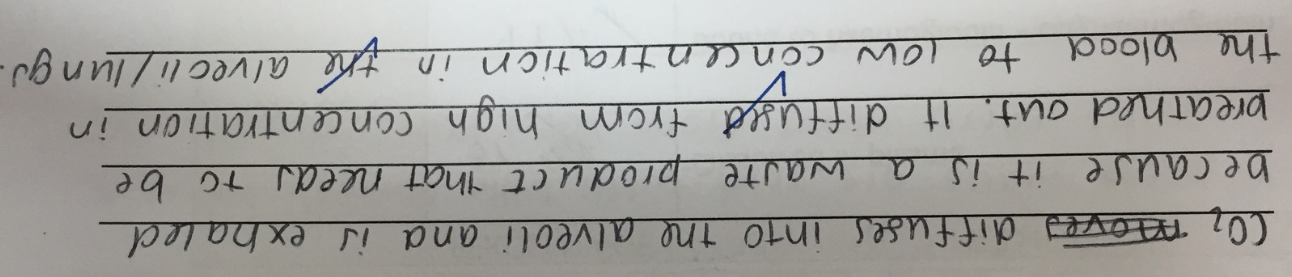 CO₂ moves diffuses into the alveoli and is exhaled
because it is a waste product that needs to be
breathed out. It diffused from high concentration in
the blood to low concentration in the alveoli/lungs.